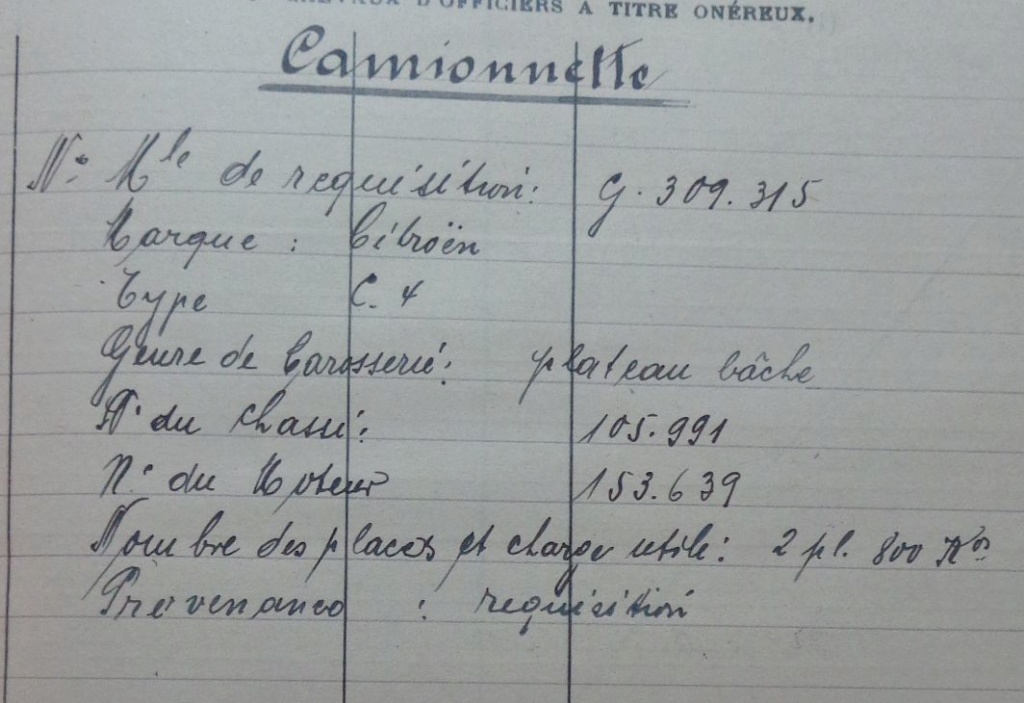 CHEVAUX D'OFFICIERS A TITRE ONÉREUX.
Camionnette
N° Mle de requisition: G. 309.315
Marque : Citroën
Type C. 4
Genre de Carosserie: plateau bâche
N° du Chassi:
105.991
N° du Moteur 153.639
Nombre des places et charge utile: 2 pl. 800 Kos
Provenance : requisition